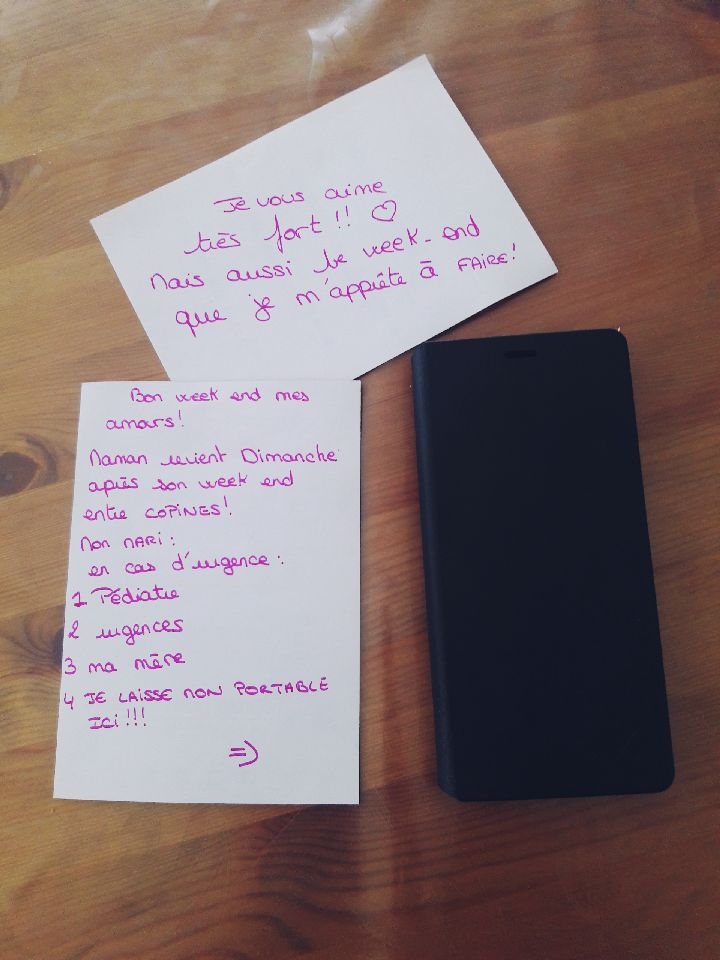 Je vous aime
très fort !! ♡
Mais aussi le week-end
que je m'apprête à FAIRE!
Bon week end mes
amours!
Maman revient Dimanche
après son week end
entre COPINES!
Mon MARI :
en cas d'urgence :
1 Pédiatre
2 urgences
3 ma mère
4 JE LAISSE MON PORTABLE
ICI !!!
=)